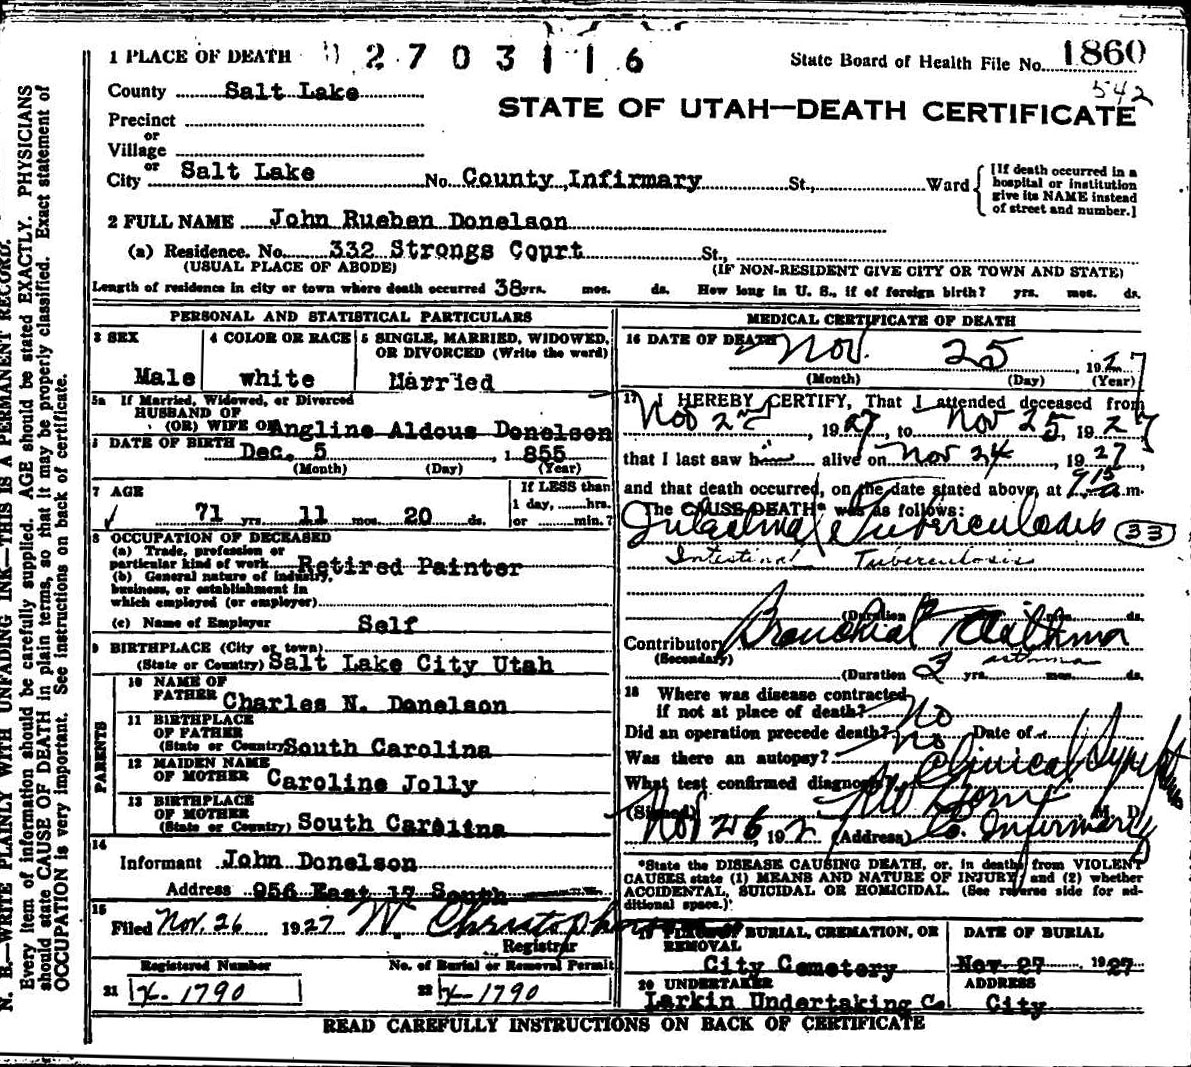 1 PLACE OF DEATH 2 7 0 3 1 1 6 State Board of Health File No. 1860
542
County Salt Lake
STATE OF UTAH—DEATH CERTIFICATE
Precinct
or
Village
or
City Salt Lake No. County Infirmary St., Ward
[If death occurred in a hospital or institution give its NAME instead of street and number.]
2 FULL NAME John Rueben Donelson
(a) Residence. No. 332 Strongs Court St.,
(USUAL PLACE OF ABODE) (IF NON-RESIDENT GIVE CITY OR TOWN AND STATE)
Length of residence in city or town where death occurred 38 yrs. mos. ds. How long in U. S., if of foreign birth? yrs. mos. ds.
PERSONAL AND STATISTICAL PARTICULARS
3 SEX 4 COLOR OR RACE 5 SINGLE, MARRIED, WIDOWED,
OR DIVORCED (Write the word)
Male white Married
5a If Married, Widowed, or Divorced
HUSBAND OF
(OR) WIFE OF Angline Aldous Donelson
DATE OF BIRTH Dec. 5, 1855
(Month) (Day) (Year)
7 AGE If LESS than
1 day, hrs.
71 yrs. 11 mos. 20 ds. or min.?
8 OCCUPATION OF DECEASED
(a) Trade, profession or
particular kind of work Retired Painter
(b) General nature of industry,
business, or establishment in
which employed (or employer)
(c) Name of Employer Self
9 BIRTHPLACE (City or town)
(State or Country) Salt Lake City Utah
PARENTS
10 NAME OF
FATHER Charles N. Donelson
11 BIRTHPLACE
OF FATHER
(State or Country) South Carolina
12 MAIDEN NAME
OF MOTHER Caroline Jolly
13 BIRTHPLACE
OF MOTHER
(State or Country) South Carolina
14
Informant John Donelson
Address 956 East 17 South
15
Filed Nov. 26 1927 W. Christopherson
Registrar
Registered Number No. of Burial or Removal Permit
21 X-1790 22 X-1790
MEDICAL CERTIFICATE OF DEATH
16 DATE OF DEATH Nov. 25, 1927
(Month) (Day) (Year)
17 I HEREBY CERTIFY, That I attended deceased from
Nov 2nd, 1927, to Nov 25, 1927
that I last saw him alive on Nov 24, 1927,
and that death occurred, on the date stated above, at 9 15 a.m.
The CAUSE DEATH* was as follows:
Intestinal Tuberculosis 33
Intestinal Tuberculosis
(Duration mos. ds.
Contributory Bronchial Asthma
(Secondary) asthma
(Duration 2 yrs. mos. ds.
18 Where was disease contracted
if not at place of death?
Did an operation precede death? No Date of
Was there an autopsy? No
What test confirmed diagnosis? Clinical Symptoms
(Signed) M. D.
Nov 26, 192 (Address) Co. Infirmary
*State the DISEASE CAUSING DEATH, or, in deaths from VIOLENT
CAUSES, state (1) MEANS AND NATURE OF INJURY, and (2) whether
ACCIDENTAL, SUICIDAL OR HOMICIDAL. (See reverse side for ad-
ditional space.)
19 PLACE OF BURIAL, CREMATION, OR DATE OF BURIAL
REMOVAL
City Cemetery Nov 27, 1927
20 UNDERTAKER ADDRESS
Larkin Undertaking Co. City
READ CAREFULLY INSTRUCTIONS ON BACK OF CERTIFICATE
N. B.—WRITE PLAINLY WITH UNFADING INK—THIS IS A PERMANENT RECORD.
Every item of information should be carefully supplied. AGE should be stated EXACTLY. PHYSICIANS
should state CAUSE OF DEATH in plain terms, so that it may be properly classified. Exact statement of
OCCUPATION is very important. See instructions on back of certificate.